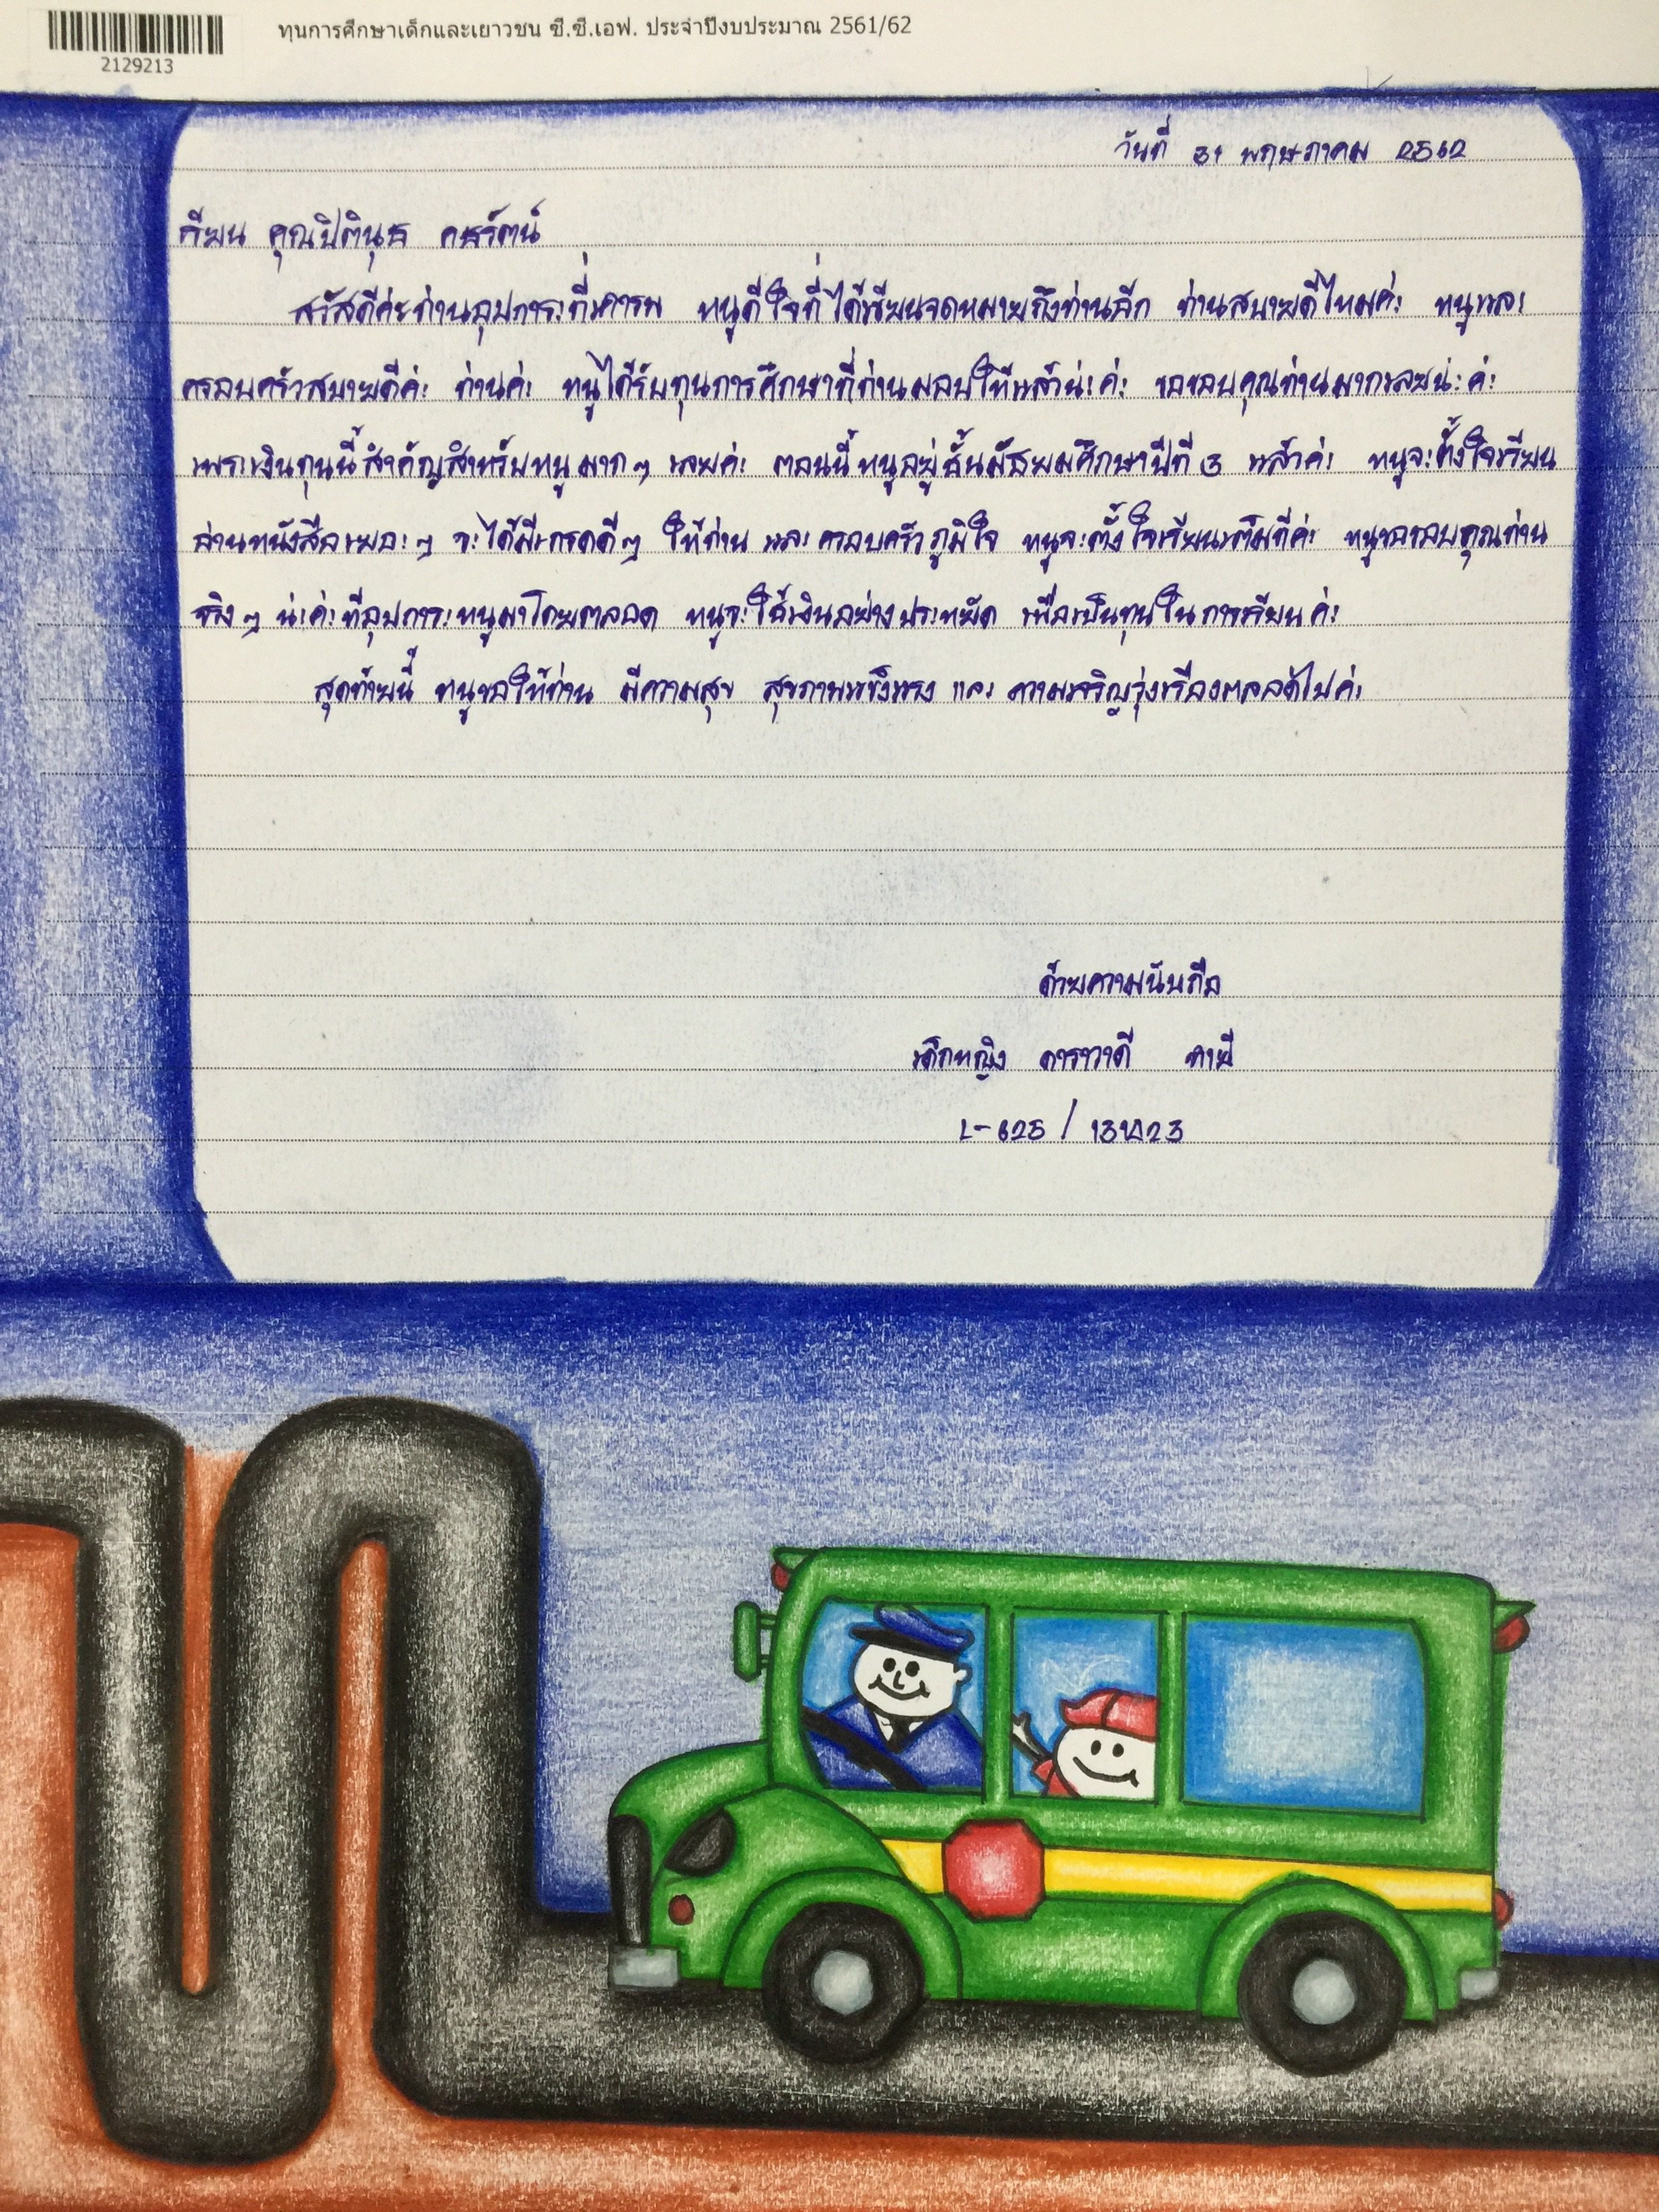 ทุนการศึกษาเด็กและเยาวชน ซี.ซี.เอฟ. ประจำปีงบประมาณ 2561/62
2129213
วันที่ 31 พฤษภาคม 2562
เรียน คุณปิตินุช
สวัสดีค่ะท่านอุปการะที่เคารพ หนูดีใจที่ได้เขียนจดหมายถึงท่านอีก ท่านสบายดีไหมค่ะ หนูและ
ครอบครัวสบายดีค่ะ ท่านค่ะ หนูได้รับทุนการศึกษาที่ท่านมอบให้แล้วน่ะค่ะ ขอขอบคุณท่านมากเลยน่ะค่ะ
เพราะเงินทุนนี้สำคัญสำหรับหนูมากๆ เลยค่ะ ตอนนี้หนูอยู่ชั้นมัธยมศึกษาปีที่ 3 แล้วค่ะ หนูจะตั้งใจเรียน
อ่านหนังสือเยอะๆ จะได้มีเกรดดีๆ ให้ท่าน และ ครอบครัวภูมิใจ หนูจะตั้งใจเรียนเต็มที่ค่ะ หนูขอขอบคุณท่าน
จริงๆ น่ะค่ะที่อุปการะหนูมาโดยตลอด หนูจะใช้เงินอย่างประหยัด เพื่อเป็นทุนในการเรียนค่ะ
สุดท้ายนี้ หนูขอให้ท่าน มีความสุข สุขภาพแข็งแรง และ ความเจริญรุ่งเรืองตลอดไปค่ะ
ด้วยความนับถือ
เด็กหญิง
L-625 /